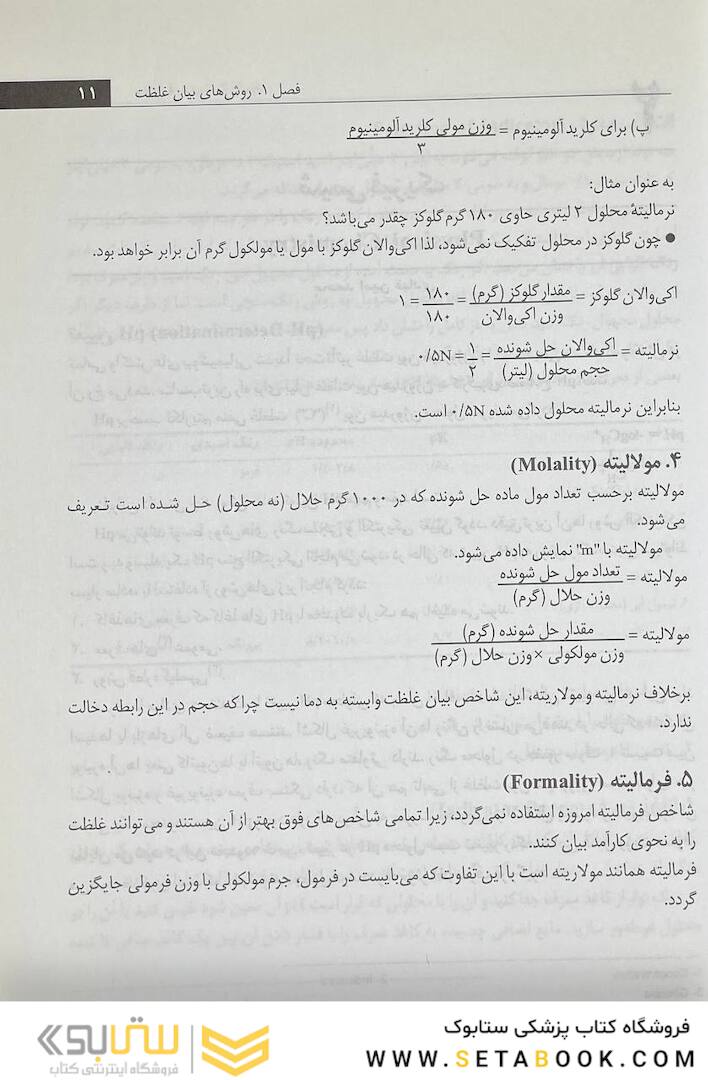 فصل ۱. روش‌های بیان غلظت ۱۱
پ) برای کلرید آلومینیوم = وزن مولی کلرید آلومینیوم
۳
به عنوان مثال:
نرمالیتهٔ محلول ۲ لیتری حاوی ۱۸۰ گرم گلوکز چقدر می‌باشد؟
● چون گلوکز در محلول تفکیک نمی‌شود، لذا اکی‌والان گلوکز با مول یا مولکول گرم آن برابر خواهد بود.
اکی‌والان گلوکز = مقدار گلوکز (گرم) / وزن اکی‌والان = ۱۸۰ / ۱۸۰ = ۱
نرمالیته = اکی‌والان حل شونده / حجم محلول (لیتر) = ۱ / ۲ = ۰/۵N
بنابراین نرمالیته محلول داده شده ۰/۵N است.
۴. مولالیته (Molality)
مولالیته برحسب تعداد مول ماده حل شونده که در ۱۰۰۰ گرم حلال (نه محلول) حل شده است تعریف
می‌شود.
مولالیته با "m" نمایش داده می‌شود.
مولالیته = تعداد مول حل شونده / وزن حلال (گرم)
مولالیته = مقدار حل شونده (گرم) / وزن مولکولی × وزن حلال (گرم)
برخلاف نرمالیته و مولاریته، این شاخص بیان غلظت وابسته به دما نیست چرا که حجم در این رابطه دخالت
ندارد.
۵. فرمالیته (Formality)
شاخص فرمالیته امروزه استفاده نمی‌گردد، زیرا تمامی شاخص‌های فوق بهتر از آن هستند و می‌توانند غلظت
را به نحوی کارآمد بیان کنند.
فرمالیته همانند مولاریته است با این تفاوت که می‌بایست در فرمول، جرم مولکولی با وزن فرمولی جایگزین
گردد.
فروشگاه کتاب پزشکی ستابوک
WWW.SETABOOK.COM
ستابوک
فروشگاه اینترنتی کتاب